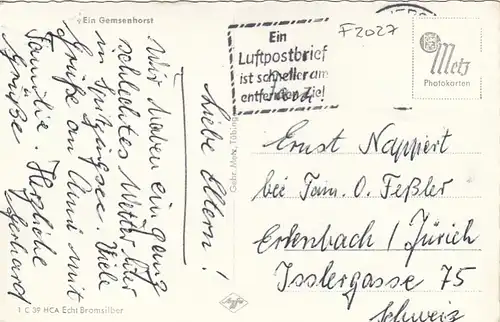 Ein Gemsenhorst
Liebe Eltern!
Wir haben ein ganz
schlechtes Wetter hier
im Spitzingsee. Viele
Grüße an Anni mit
Familie. Herzliche
Grüße Gerhard
1 C 39 HCA Echt Bromsilber
Gebr. Metz, Tübingen
Agfa
Ein
Luftpostbrief
ist schneller am
entfernten Ziel
F2027
Metz
Photokarten
Ernst Nappert
bei Fam. O. Feßler
Erlenbach / Zürich
Isslergasse 75
Schweiz